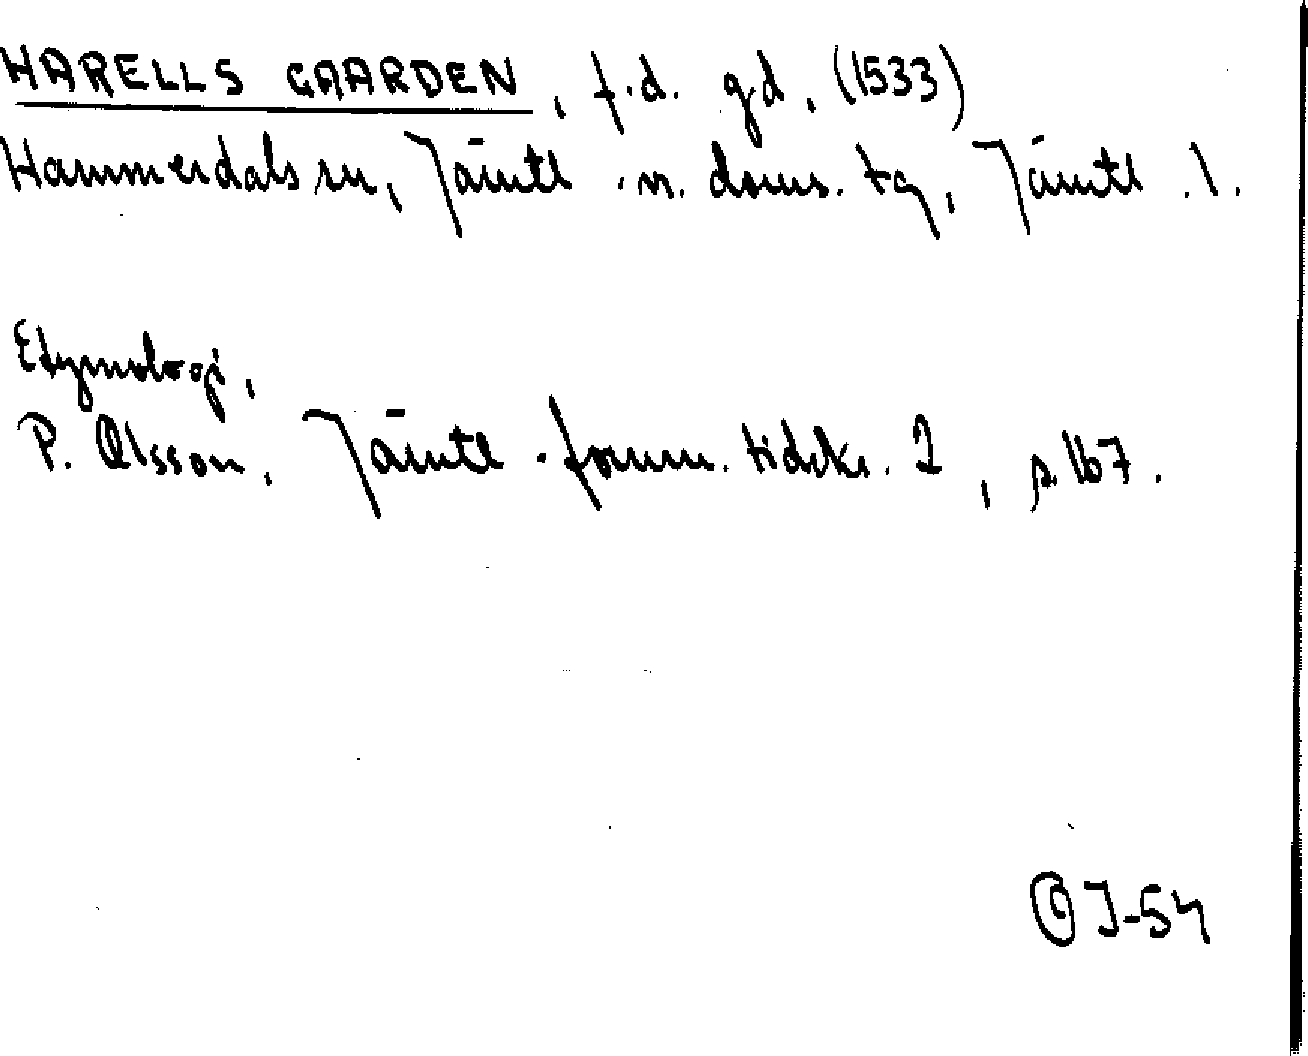 HARELLS GAARDEN, f.d. gd, (1533)
Hammerdals sn, Jämtl. n. doms. tg, Jämtl. l.
Etymologi,
P. Olsson, Jämtl. fornm. tidskr. 2, s. 167.
J-54